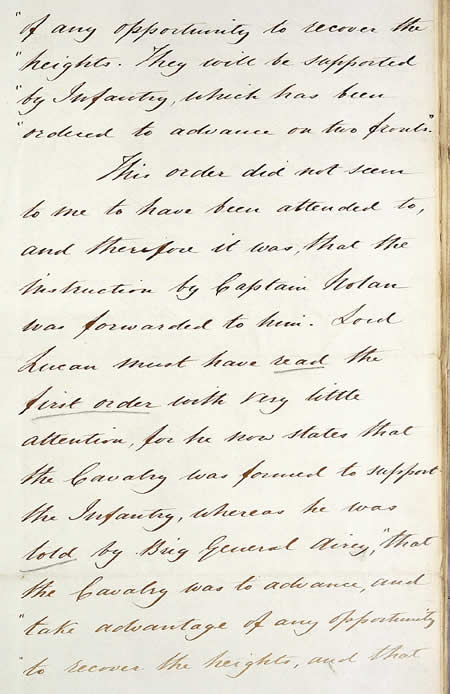 "of any opportunity to recover the
"heights. They will be supported
"by Infantry, which has been
"ordered to advance on two fronts".
This order did not seem
to me to have been attended to,
and therefore it was, that the
instruction by Captain Nolan
was forwarded to him. Lord
Lucan must have read the
first order with very little
attention, for he now states that
the Cavalry was formed to support
the Infantry, whereas he was
told by Brig General Airey, "that
the Cavalry was to advance, and
"take advantage of any opportunity
"to recover the heights, and that